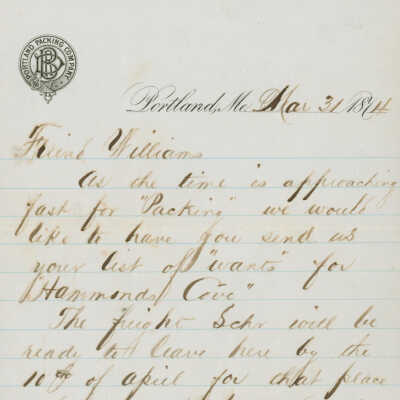 PORTLAND PACKING COMPANY
Portland, Me. Mar 31 1874
Friend Williams
As the time is approaching
fast for "Packing" we would
like to have you send us
your list of "wants" for
"Hammonds Cove"
The freight Schr will be
ready to leave here by the
10th of april for that place